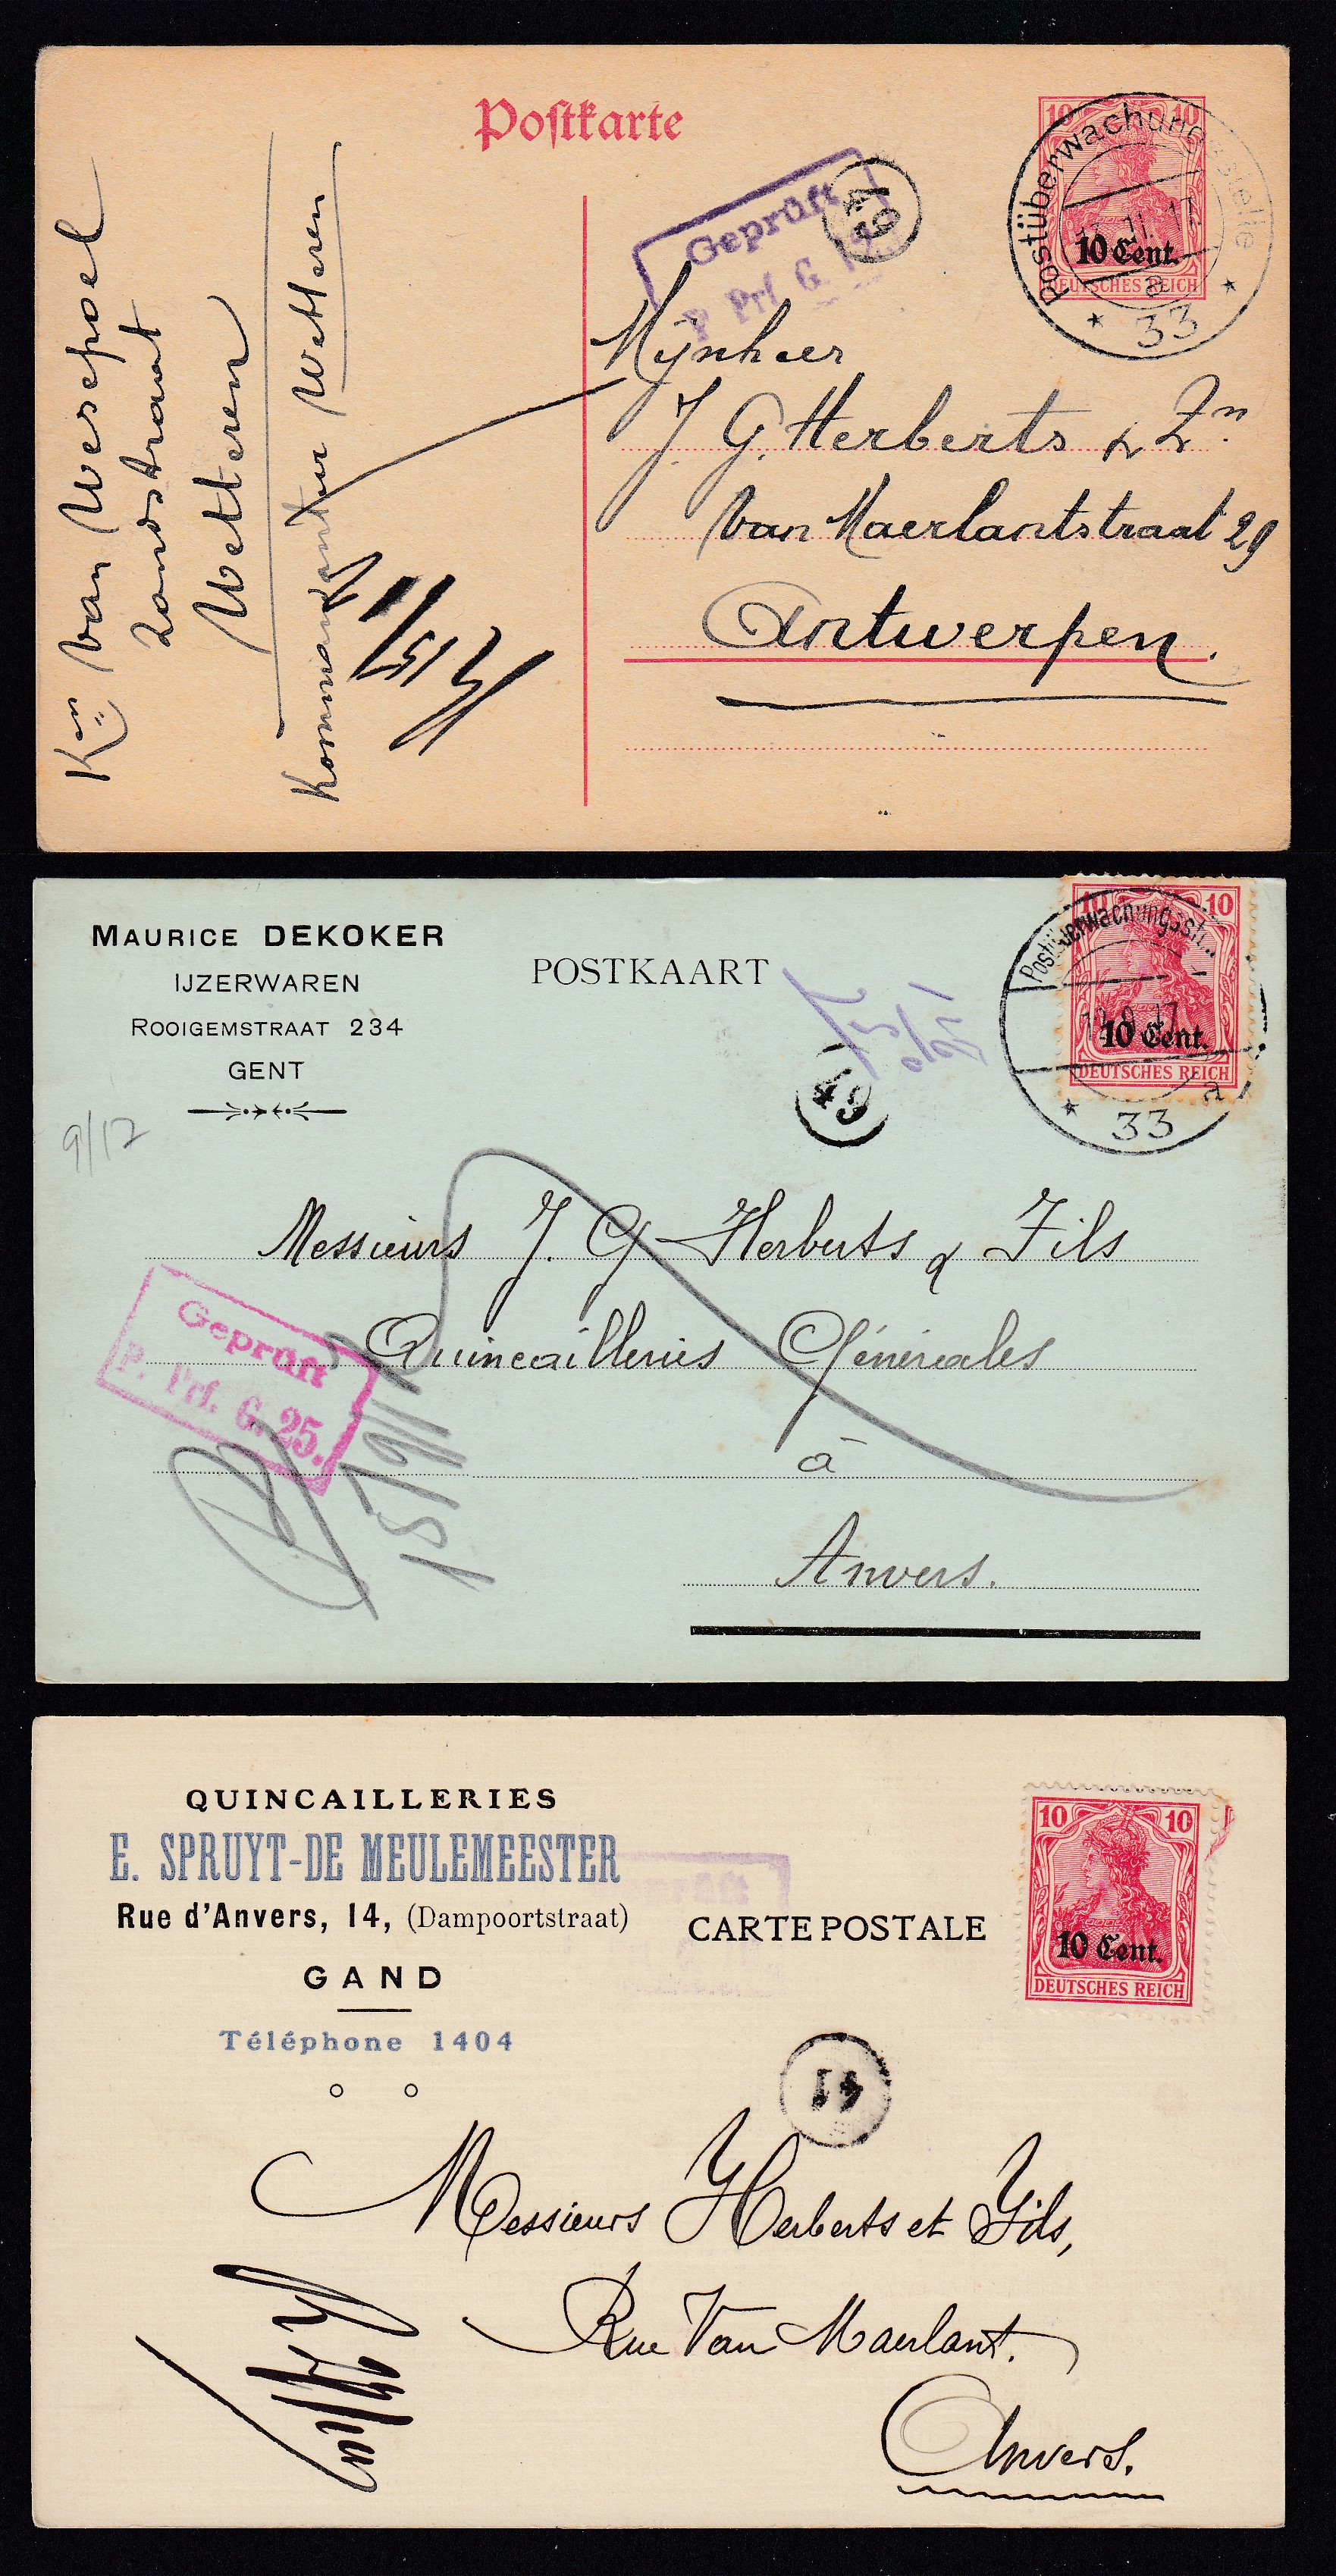 Postkarte
10 10
10 Cent.
DEUTSCHES REICH
Postüberwachungsstelle
11. 17
a
* 33 *
Geprüft
P Prf G.
49
Kⁿ Van Wesepoel
Zandstraat
Wetteren
Wetteren
Mijnheer
J. G. Herberts & Zⁿ.
Van Maerlantstraat 29
Antwerpen.
MAURICE DEKOKER
IJZERWAREN
ROOIGEMSTRAAT 234
GENT
POSTKAART
10 10
10 Cent.
DEUTSCHES REICH
Postüberwachungsst.
a
* 33
49
9/17
Messieurs J. G Herberts & Fils
Quincailleries Générales
à
Anvers.
Geprüft
P. Prf. G. 25.
QUINCAILLERIES
E. SPRUYT-DE MEULEMEESTER
Rue d'Anvers, 14, (Dampoortstraat)
GAND
Téléphone 1404
CARTE POSTALE
10 10
10 Cent.
DEUTSCHES REICH
41
Messieurs Herberts et Fils,
Rue Van Maerlant.
Anvers.